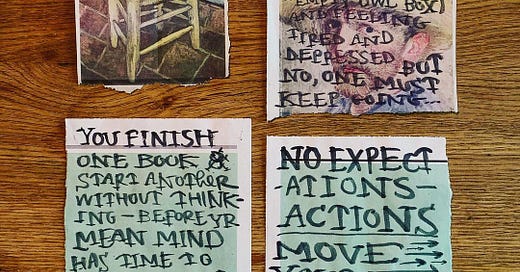 (EMPTY OWL BOX)
AND FEELING
TIRED AND
DEPRESSED
BUT
NO, ONE MUST
KEEP GOING...
YOU FINISH
ONE BOOK &
START ANOTHER
WITHOUT THINK-
ING – BEFORE YR
MEAN MIND
HAS TIME TO
NO EXPECT
-ATIONS-
ACTIONS
MOVE